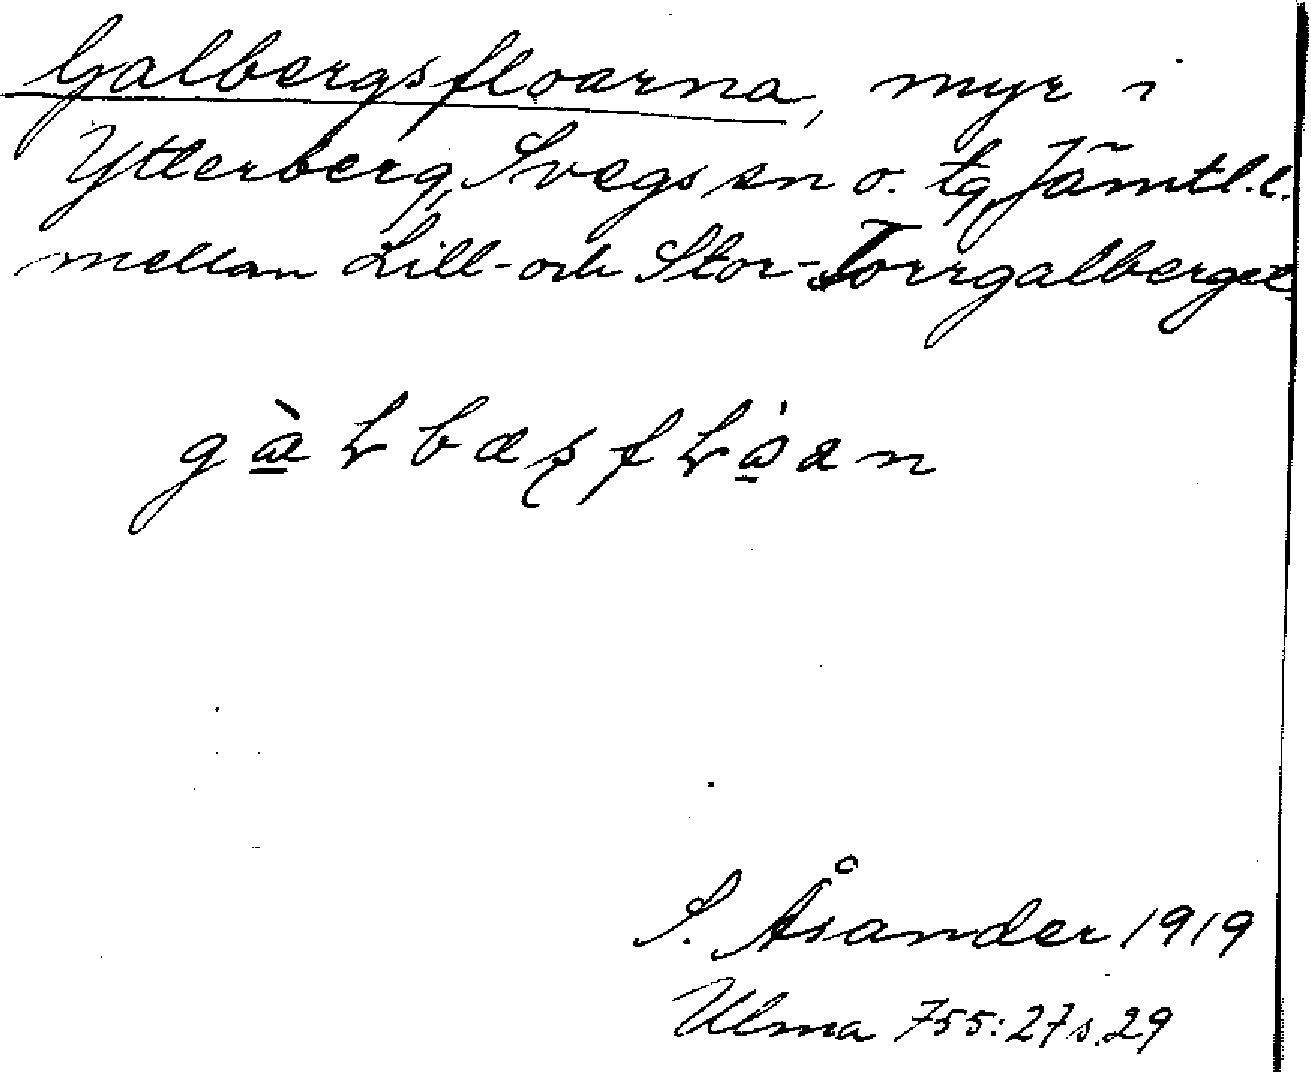 Galbergsfloarna, myr i
Ytterberg, Svegs sn o. tg, Jämtl. l.
mellan Lill- och Stor-Torrgalberget
S. Åsander 1919
Ulma 755:27 s. 29